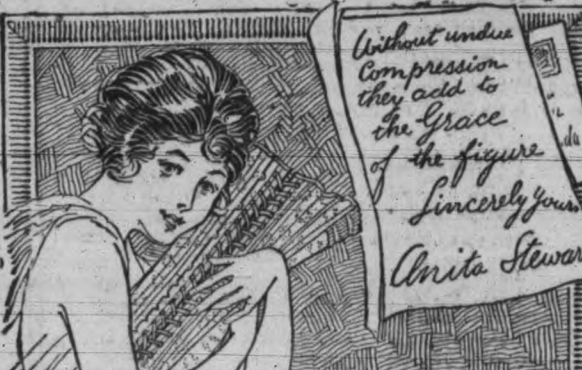 Without undue
compression
they add to
the Grace
of the figure
Sincerely yours
Anita Stewar